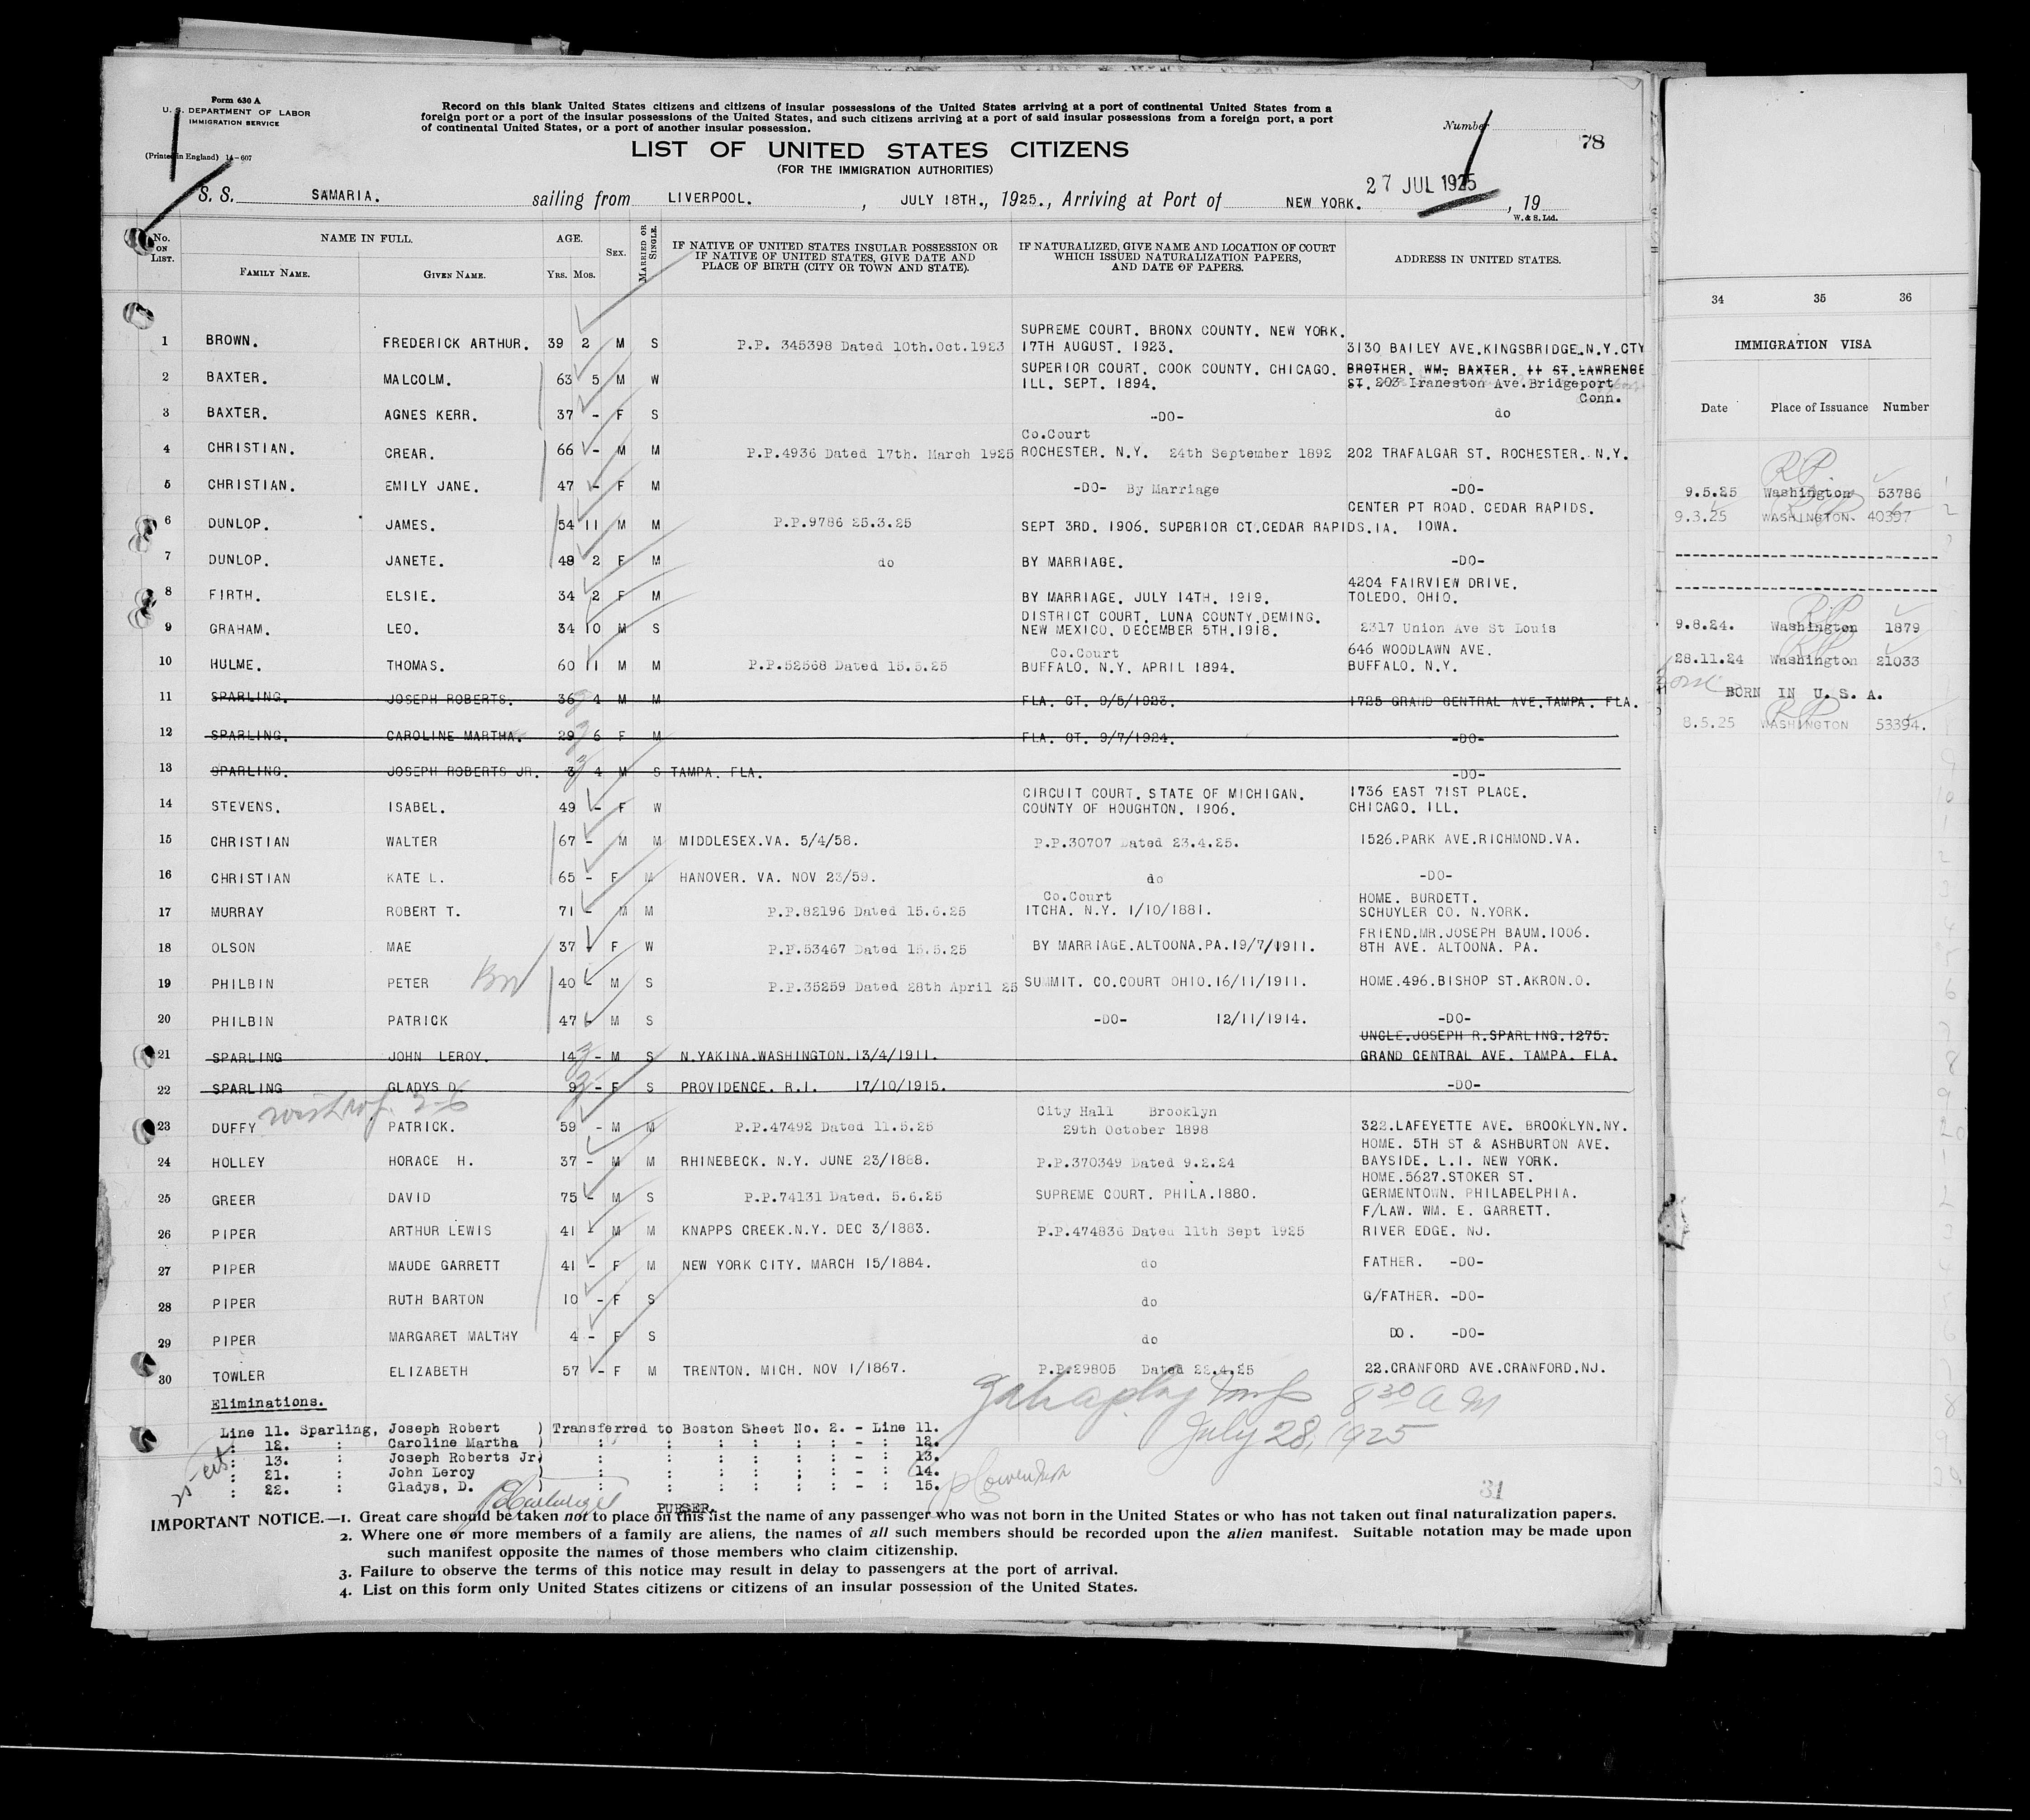 Form 630 A
U. S. DEPARTMENT OF LABOR
IMMIGRATION SERVICE
(Printed in England) 14-607
Record on this blank United States citizens and citizens of insular possessions of the United States arriving at a port of continental United States from a
foreign port or a port of the insular possessions of the United States, and such citizens arriving at a port of said insular possessions from a foreign port, a port
of continental United States, or a port of another insular possession.
Number 78
LIST OF UNITED STATES CITIZENS
(FOR THE IMMIGRATION AUTHORITIES)
S. S. SAMARIA. sailing from LIVERPOOL. , JULY 18TH., 1925., Arriving at Port of NEW YORK. 27 JUL 1925, 19
W. & S. Ltd.
No. ON LIST. NAME IN FULL. FAMILY NAME. GIVEN NAME. AGE. Yrs. Mos. SEX. MARRIED OR SINGLE.
IF NATIVE OF UNITED STATES INSULAR POSSESSION OR
IF NATIVE OF UNITED STATES, GIVE DATE AND
PLACE OF BIRTH (CITY OR TOWN AND STATE).
IF NATURALIZED, GIVE NAME AND LOCATION OF COURT
WHICH ISSUED NATURALIZATION PAPERS,
AND DATE OF PAPERS.
ADDRESS IN UNITED STATES.
SUPREME COURT. BRONX COUNTY. NEW YORK.
1 BROWN. FREDERICK ARTHUR. 39 2 M S P.P. 345398 Dated 10th.Oct.1923 17TH AUGUST. 1923. 3130 BAILEY AVE.KINGSBRIDGE.N.Y.CTY
SUPERIOR COURT. COOK COUNTY. CHICAGO. BROTHER. WM. BAXTER. 11 ST.LAWRENCE
2 BAXTER. MALCOLM. 63 5 M W ILL. SEPT. 1894. ST. 203 Iraneston Ave.Bridgeport
Conn.
3 BAXTER. AGNES KERR. 37 - F S -DO- do
Co.Court
4 CHRISTIAN. CREAR. 66 - M M P.P.4936 Dated 17th. March 1925 ROCHESTER. N.Y. 24th September 1892 202 TRAFALGAR ST. ROCHESTER. N.Y.
5 CHRISTIAN. EMILY JANE. 47 - F M -DO- By Marriage -DO-
CENTER PT ROAD. CEDAR RAPIDS.
6 DUNLOP. JAMES. 54 11 M M P.P.9786 25.3.25 SEPT 3RD. 1906. SUPERIOR CT.CEDAR RAPIDS.IA. IOWA.
7 DUNLOP. JANETE. 48 2 F M do BY MARRIAGE. -DO-
4204 FAIRVIEW DRIVE.
8 FIRTH. ELSIE. 34 2 F M BY MARRIAGE. JULY 14TH. 1919. TOLEDO. OHIO.
DISTRICT COURT. LUNA COUNTY.DEMING.
9 GRAHAM. LEO. 34 10 M S NEW MEXICO. DECEMBER 5TH.1918. 2317 Union Ave St Louis
Co.Court 646 WOODLAWN AVE.
10 HULME. THOMAS. 60 11 M M P.P.52568 Dated 15.5.25 BUFFALO. N.Y. APRIL 1894. BUFFALO. N.Y.
11 SPARLING. JOSEPH ROBERTS. 36 4 M M FLA. CT. 9/5/1923. 1725 GRAND CENTRAL AVE.TAMPA. FLA.
12 SPARLING. CAROLINE MARTHA. 29 6 F M FLA. CT. 9/7/1924. -DO-
13 SPARLING. JOSEPH ROBERTS JR. 3 4 M S TAMPA. FLA. -DO-
CIRCUIT COURT. STATE OF MICHIGAN. 1736 EAST 71ST PLACE.
14 STEVENS. ISABEL. 49 - F W COUNTY OF HOUGHTON. 1906. CHICAGO. ILL.
15 CHRISTIAN WALTER 67 - M M MIDDLESEX.VA. 5/4/58. P.P.30707 Dated 23.4.25. 1526.PARK AVE.RICHMOND.VA.
16 CHRISTIAN KATE L. 65 - F M HANOVER. VA. NOV 23/59. do -DO-
Co.Court HOME. BURDETT.
17 MURRAY ROBERT T. 71 - M M P.P.82196 Dated 15.6.25 ITCHA. N.Y. 1/10/1881. SCHUYLER CO. N.YORK.
FRIEND.MR.JOSEPH BAUM.1006.
18 OLSON MAE 37 - F W P.P.53467 Dated 15.5.25 BY MARRIAGE.ALTOONA.PA.19/7/1911. 8TH AVE. ALTOONA. PA.
19 PHILBIN PETER 40 - M S P.P.35259 Dated 28th April 25 SUMMIT. CO.COURT OHIO.16/11/1911. HOME.496.BISHOP ST.AKRON.O.
20 PHILBIN PATRICK 47 - M S -DO- 12/11/1914. -DO-
UNCLE.JOSEPH R.SPARLING.1275.
21 SPARLING JOHN LEROY. 14 - M S N.YAKINA.WASHINGTON.13/4/1911. GRAND CENTRAL AVE. TAMPA. FLA.
22 SPARLING GLADYS D. 9 - F S PROVIDENCE. R.I. 17/10/1915. -DO-
City Hall Brooklyn
23 DUFFY PATRICK. 59 - M M P.P.47492 Dated 11.5.25 29th October 1898 322.LAFEYETTE AVE. BROOKLYN.NY.
HOME. 5TH ST & ASHBURTON AVE.
24 HOLLEY HORACE H. 37 - M M RHINEBECK. N.Y. JUNE 23/1888. P.P.370349 Dated 9.2.24 BAYSIDE. L.I. NEW YORK.
HOME.5627.STOKER ST.
25 GREER DAVID 75 - M S P.P.74131 Dated. 5.6.25 SUPREME COURT. PHILA.1880. GERMENTOWN. PHILADELPHIA.
F/LAW. WM. E. GARRETT.
26 PIPER ARTHUR LEWIS 41 - M M KNAPPS CREEK.N.Y. DEC 3/1883. P.P.474836 Dated 11th Sept 1925 RIVER EDGE. NJ.
27 PIPER MAUDE GARRETT 41 - F M NEW YORK CITY. MARCH 15/1884. do FATHER. -DO-
28 PIPER RUTH BARTON 10 - F S do G/FATHER. -DO-
29 PIPER MARGARET MALTHY 4 - F S do DO. -DO-
30 TOWLER ELIZABETH 57 - F M TRENTON. MICH. NOV 1/1867. P.P.29805 Dated 22.4.25 22.CRANFORD AVE.CRANFORD.NJ.
8 30 A M
July 28, 1925
Eliminations.
Line 11. Sparling, Joseph Robert ) Transferred to Boston Sheet No. 2. - Line 11.
: 12. : Caroline Martha ) : : : : : : - : 12.
: 13. : Joseph Roberts Jr) : : : : : : - : 13.
: 21. : John Leroy ) : : : : : : - : 14.
: 22. : Gladys, D. ) : : : : : : - : 15.
PURSER.
31
IMPORTANT NOTICE.—1. Great care should be taken not to place on this list the name of any passenger who was not born in the United States or who has not taken out final naturalization papers.
2. Where one or more members of a family are aliens, the names of all such members should be recorded upon the alien manifest. Suitable notation may be made upon
such manifest opposite the names of those members who claim citizenship.
3. Failure to observe the terms of this notice may result in delay to passengers at the port of arrival.
4. List on this form only United States citizens or citizens of an insular possession of the United States.
34 35 36
IMMIGRATION VISA
Date Place of Issuance Number
9.5.25 Washington 53786
9.3.25 WASHINGTON. 40397
9.8.24. Washington 1879
28.11.24 Washington 21033
BORN IN U. S. A.
8.5.25 WASHINGTON 53394.